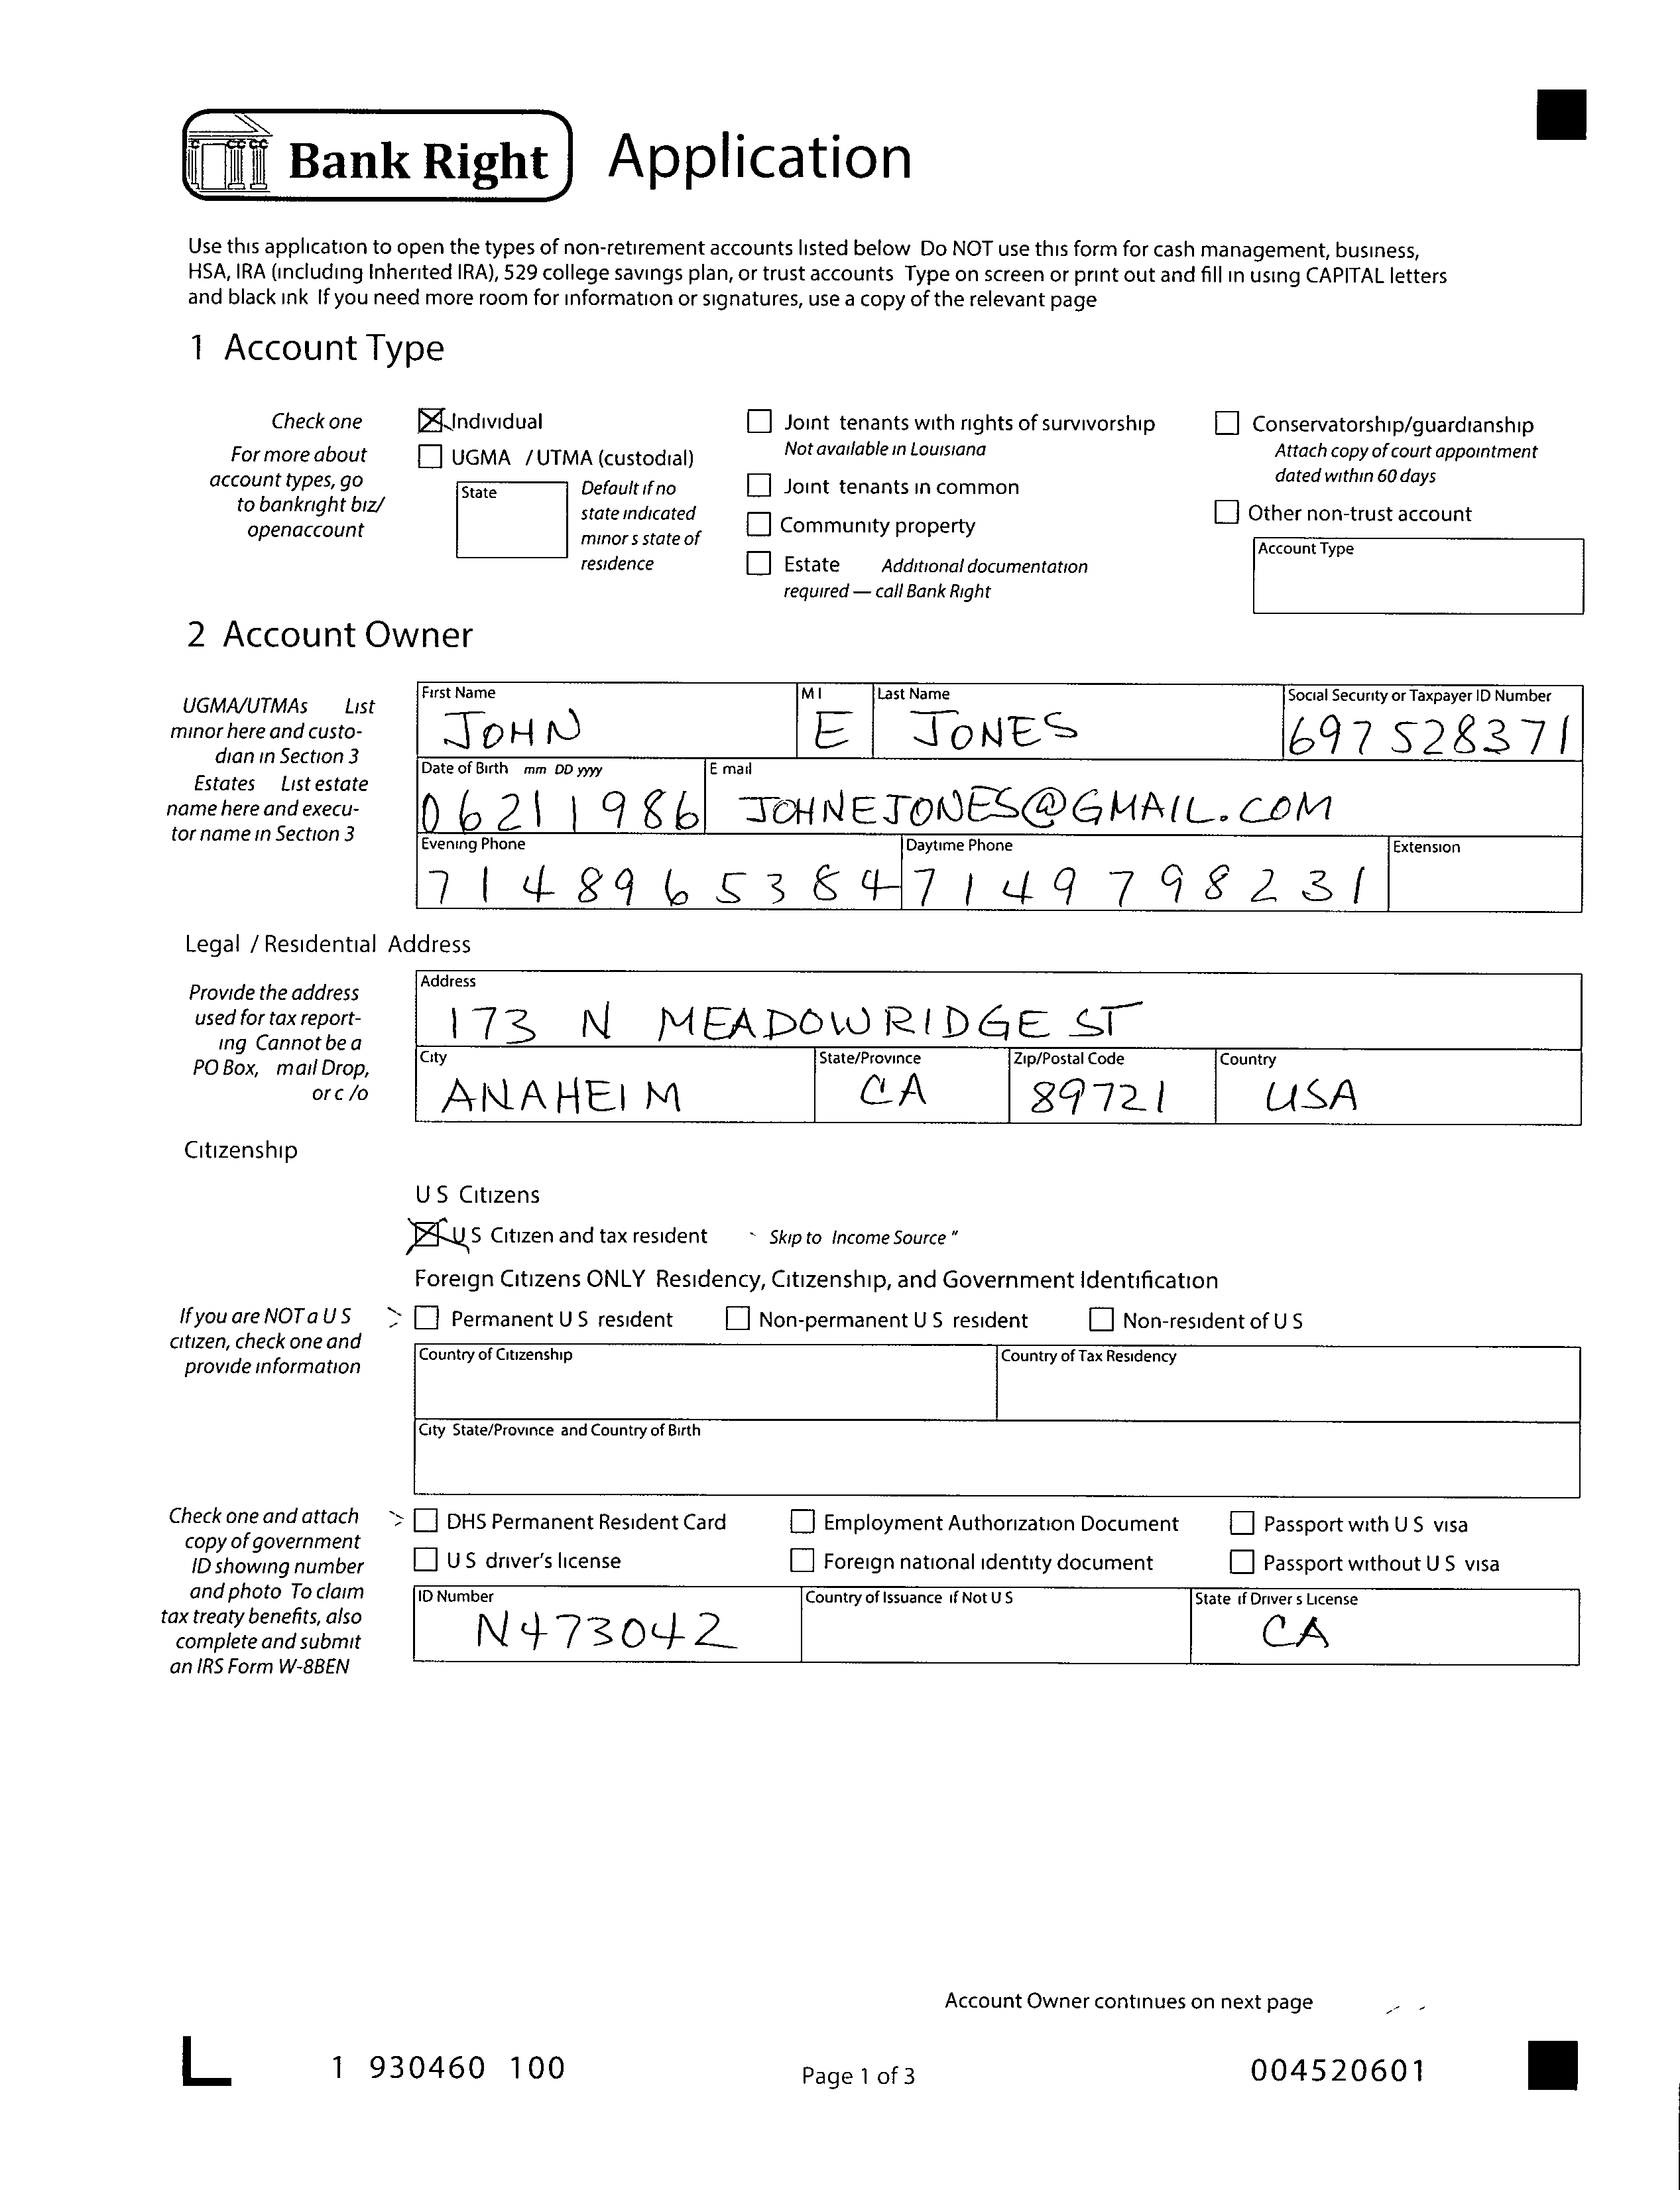 Bank Right Application
Use this application to open the types of non-retirement accounts listed below Do NOT use this form for cash management, business,
HSA, IRA (including Inherited IRA), 529 college savings plan, or trust accounts Type on screen or print out and fill in using CAPITAL letters
and black ink If you need more room for information or signatures, use a copy of the relevant page
1 Account Type
Check one
For more about
account types, go
to bankright biz/
openaccount
Individual
UGMA / UTMA (custodial)
State
Default if no
state indicated
minor s state of
residence
Joint tenants with rights of survivorship
Not available in Louisiana
Joint tenants in common
Community property
Estate Additional documentation
required — call Bank Right
Conservatorship/guardianship
Attach copy of court appointment
dated within 60 days
Other non-trust account
Account Type
2 Account Owner
UGMA/UTMAs List
minor here and custo-
dian in Section 3
Estates List estate
name here and execu-
tor name in Section 3
First Name M I Last Name Social Security or Taxpayer ID Number
JOHN E JONES 697528371
Date of Birth mm DD yyyy E mail
06211986 JOHNEJONES@GMAIL.COM
Evening Phone Daytime Phone Extension
7148965384 7149798231
Legal / Residential Address
Provide the address
used for tax report-
ing Cannot be a
PO Box, mail Drop,
or c /o
Address
173 N MEADOWRIDGE ST
City State/Province Zip/Postal Code Country
ANAHEIM CA 89721 USA
Citizenship
U S Citizens
U S Citizen and tax resident Skip to Income Source "
Foreign Citizens ONLY Residency, Citizenship, and Government Identification
If you are NOT a U S
citizen, check one and
provide information
Permanent U S resident Non-permanent U S resident Non-resident of U S
Country of Citizenship Country of Tax Residency
City State/Province and Country of Birth
Check one and attach
copy of government
ID showing number
and photo To claim
tax treaty benefits, also
complete and submit
an IRS Form W-8BEN
DHS Permanent Resident Card Employment Authorization Document Passport with U S visa
U S driver's license Foreign national identity document Passport without U S visa
ID Number Country of Issuance if Not U S State if Driver s License
N473042 CA
Account Owner continues on next page
1 930460 100 Page 1 of 3 004520601